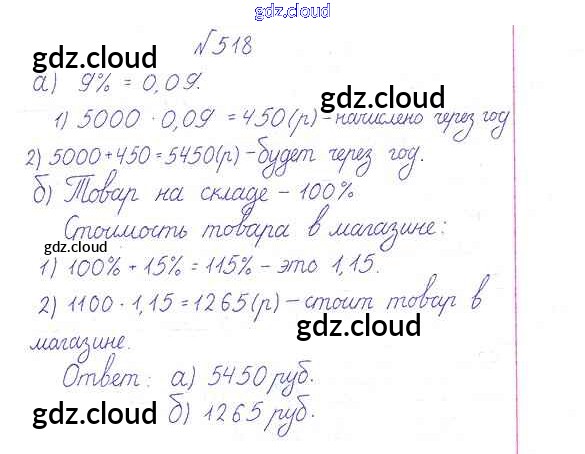 gdz.cloud
№518
gdz.cloud
а) 9% = 0,09.
gdz.cloud
1) 5000 · 0,09 = 450(р) - начислено через год
2) 5000 + 450 = 5450(р) - будет через год.
б) Товар на складе - 100%
Стоимость товара в магазине:
gdz.cloud
1) 100% + 15% = 115% - это 1,15.
2) 1100 · 1,15 = 1265(р) - стоит товар в
gdz.cloud
магазине.
Ответ: а) 5450 руб.
gdz.cloud б) 1265 руб.